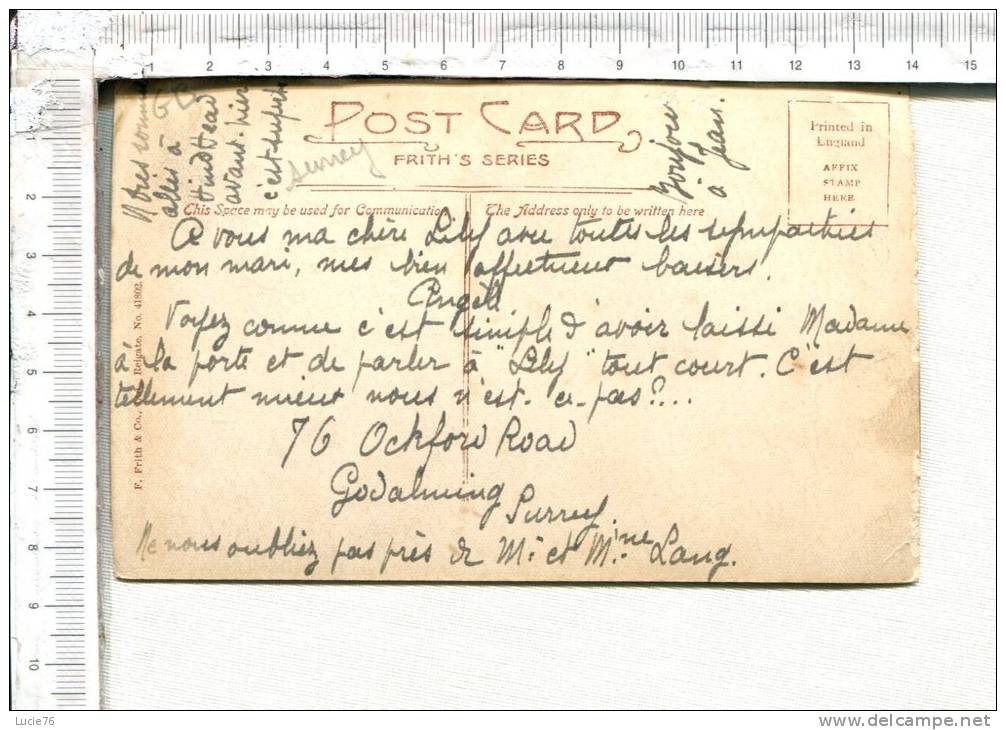 POST CARD
FRITH'S SERIES
Printed in
England
AFFIX
STAMP
HERE
This Space may be used for Communication
The Address only to be written here
Surrey
Nous sommes
allés à
HindHead
avant-hier
c'est superbe
Bonjour
à Jean.
A vous ma chère Lily avec toutes les sympathies
de mon mari, mes bien affectueux baisers.
Angèle
Voyez comme c'est simple d'avoir laissé Madame
à la porte et de parler à "Lily" tout court. C'est
tellement mieux nous n'est-ce-pas?...
76 Ockford Road
Godalming
Surrey
Ne nous oubliez pas près de Mr et Mme Lang.
F. Frith & Co., Reigate. No. 41802.
1 2 3 4 5 6 7 8 9 10 11 12 13 14 15
1 2 3 4 5 6 7 8 9 10
Lucie76
www.delcampe.net